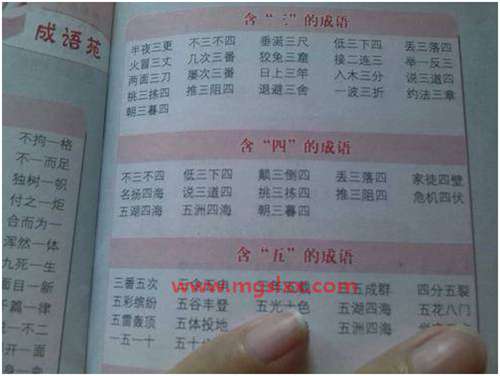 成语苑
不拘一格
不一而足
独树一帜
付之一炬
合而为一
浑然一体
九死一生
面目一新
篇一律
一不二
开一面
含“三”的成语
半夜三更 不三不四 垂涎三尺 低三下四 丢三落四
火冒三丈 几次三番 狡兔三窟 接二连三 举一反三
两面三刀 屡次三番 日上三竿 入木三分 说三道四
挑三拣四 推三阻四 退避三舍 一波三折 约法三章
朝三暮四
含“四”的成语
不三不四 低三下四 颠三倒四 丢三落四 家徒四壁
名扬四海 说三道四 挑三拣四 推三阻四 危机四伏
五湖四海 五洲四海 朝三暮四
含“五”的成语
三番五次 五成群 四分五裂
www.mgslxx.com
五彩缤纷 五谷丰登 五光十色 五湖四海 五花八门
五雷轰顶 五体投地 五洲四海
一五一十